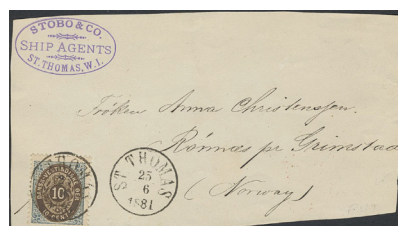 STOBO & CO.
SHIP AGENTS
ST. THOMAS, W.I.
Fröken Anna Christensen.
Rönnæs pr Grimstad
(Norway)
ST THOMAS
23
6
1881
10
CENTS